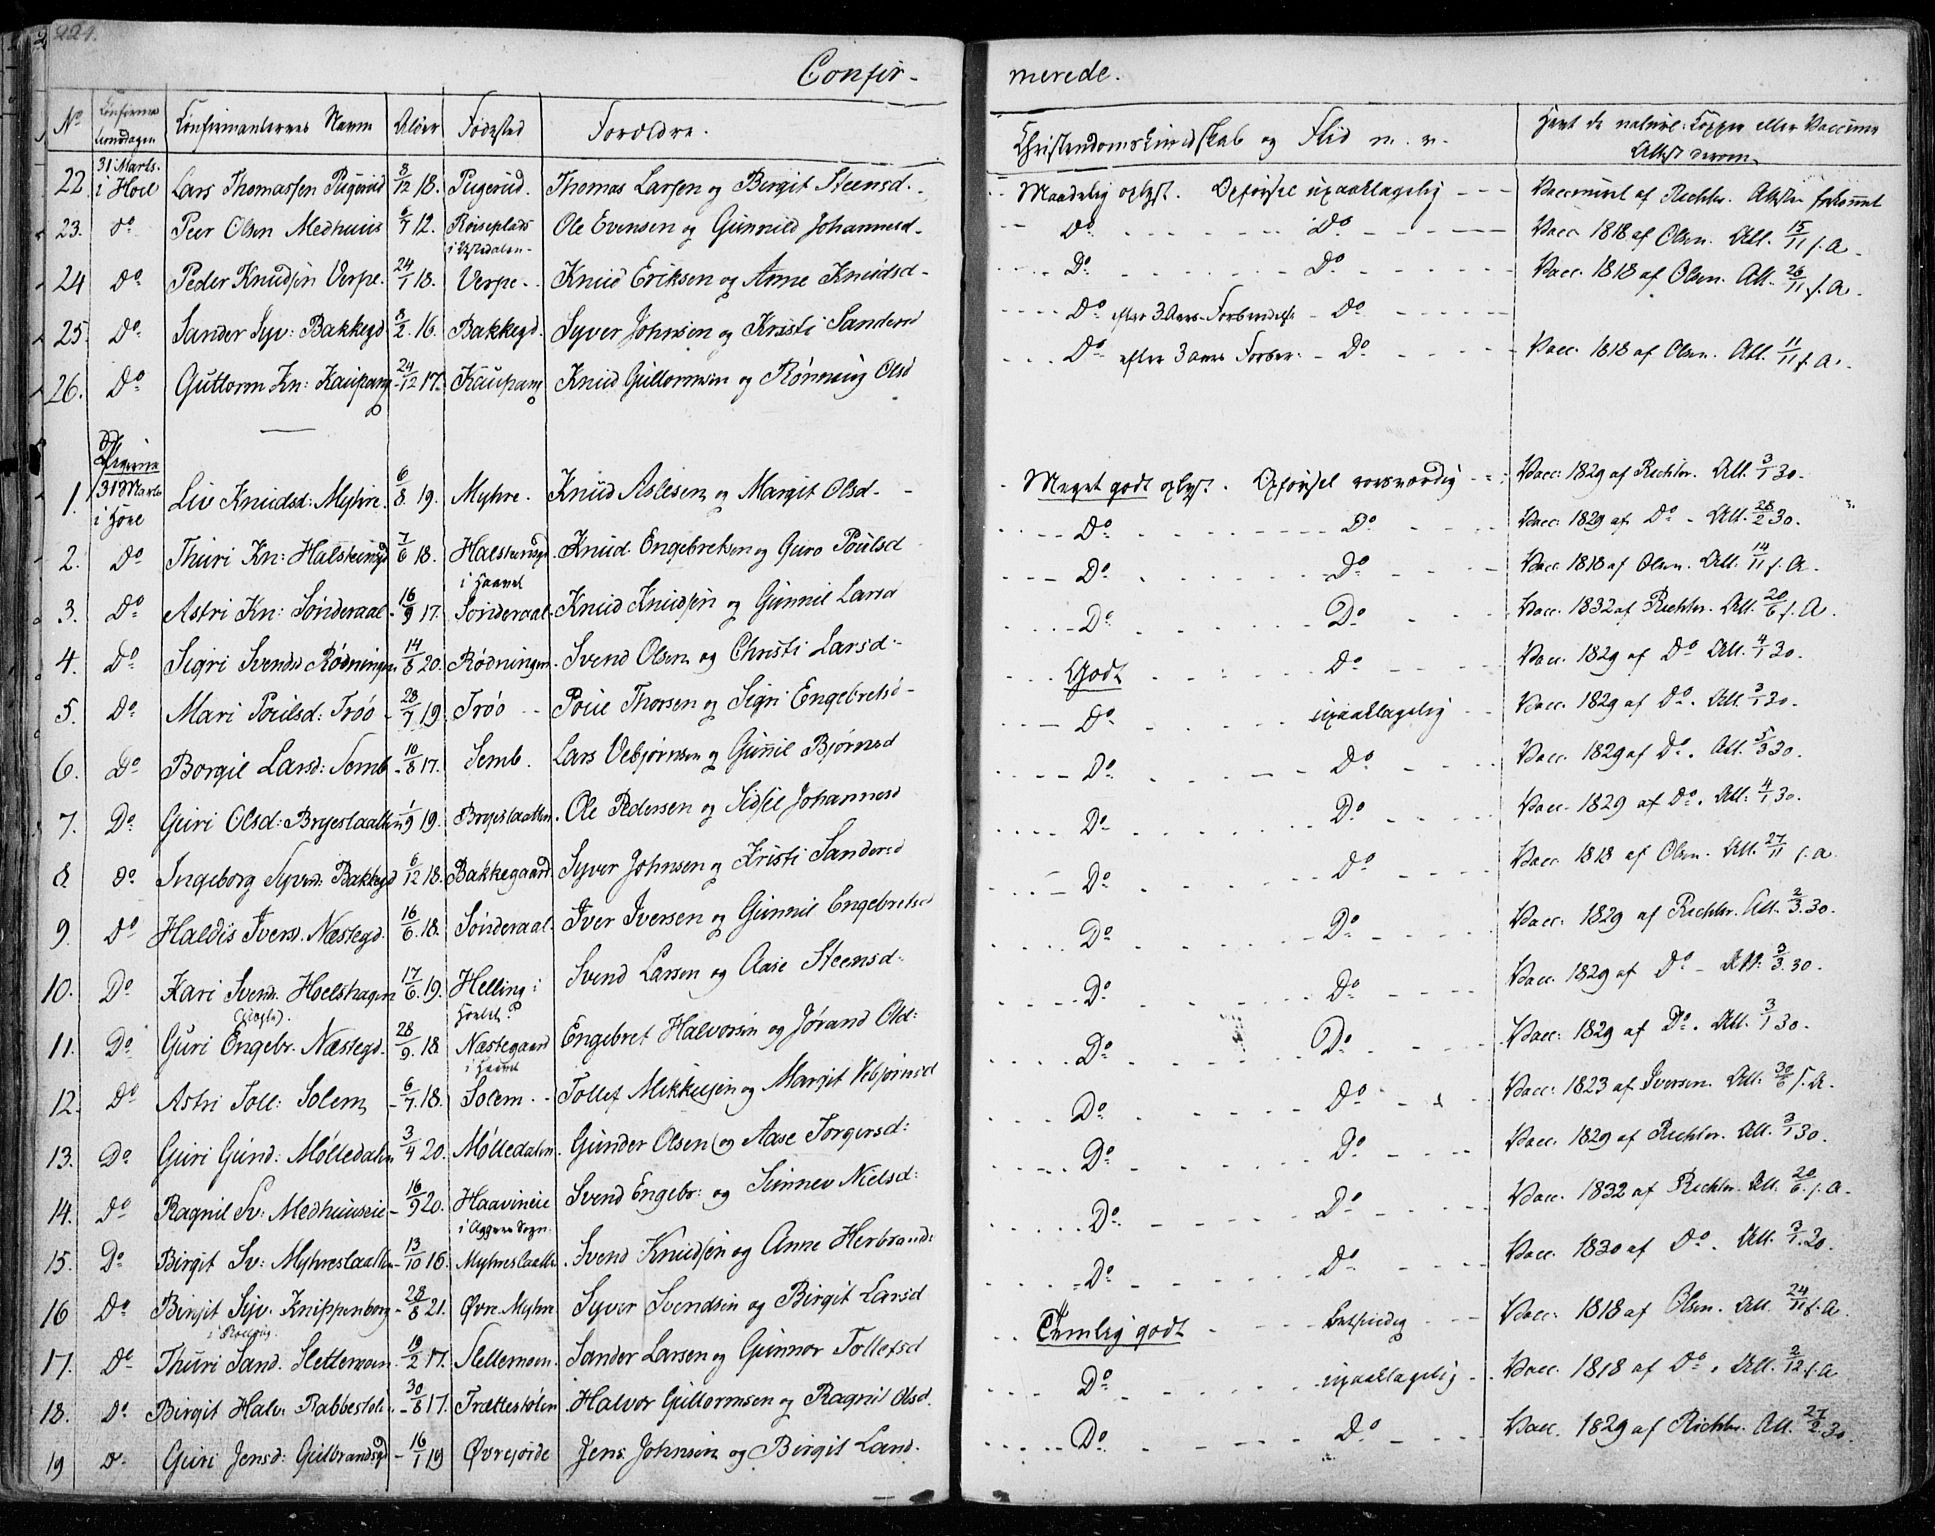 224.
Confir-
merede.
No Confirma- tionsdagen Confirmanternes Navne Alder Fødested Forældre.
Christendomskundskab og Flid m. v.
Havt de naturl: Kopper eller Vaccine
Attest derom.
22 31 Marts. i Hoel Lars Thomassen Rugerud 3/12 18. Rugerud. Thomas Larsen og Birgit Steensd. Maadelig oplyst. Opførsel upaaklagelig Vaccineret af Richter. Attesten
23. do Peer Olsen Medhuus 12. i Ole Evensen og Gunnild Johannesd. Do Do Vacc 1818 af Olsen. Att. 15/11 f. A.
24 Do Peder Knudsen Verpe. 24/1 18. Verpe. Knud Eriksen og Anne Knudsd. Do Do Vacc. 1818 af Olsen. Att. 26/11 f. A.
25. Do Sander Syv: Bakkegd 16. Bakkegd. Syver Johnsen og Kristi Sandersd Do efter 3 Aars Forberedelse Do
26. Do Guttorm Kn: Kaupang 24/12 17. Kaupang Knud Guttormsen og Rønnaug Olsd Do efter 3 Aars Forber. Do Vacc. 1818 af Olsen. Att. 11/11 f. A.
Pigerne
1. 31 Marts i Hoel Liv Knudsd: Myhre. 6/8 19. Myhre. Knud Aslesen og Margit Olsd. Meget godt oplyst. Opførsel rosværdig Vacc: 1829 af Richter. Att. 3/1 30.
2. Do Thuri Kn: Halsteinsgd 7/6 18. Halsteinsgd i Knud Engebretsen og Guro Poulsd Do Do Vacc: 1829 af Do. Att. 28/2 30.
3. Do Astri Kn: Sønderaal 16/9 17. Sønderaal. Knud Knudsen og Gunnil Larsd Do Do Vacc. 1818 af Olsen. Att. 14/11 f. A.
4. Do Sigri Svendsd Rødningen 14/8 20. Rødningen. Svend Olsen og Christi Larsd. Do Do Vacc. 1832 af Richter. Att. 20/6 f. A.
5. Do Mari Poulsd: Trøo 28/7 19. Trøo Poul Thorsen og Sigri Engebretsd Godt Do Vacc. 1829 af Do Att. 4/1 30.
6. Do Borgil Larsd: Semb 10/8 17. Semb. Lars Vebjørnsen og Gunnil Bjørnsd Do upaaklagelig Vacc. 1829 af Do. Att. 3/1 30.
7. Do Guri Olsd: Bryeslaatten 1/9 19. Bryeslaatten. Ole Pedersen og Sidsel Johannesd Do Do Vacc. 1829 af Do. Att. 5/3 30.
8. Do Ingeborg Syversd: Bakkegd 6/12 18. Bakkegaard Syver Johnsen og Kristi Sandersd Do Do Vacc. 1829 af Do. Att. 4/1 30.
9. Do Haldis Iversd. Næstegd. 16/6 18. Sønderaal. Iver Iversen og Gunnil Engebretsd Do Do Vacc. 1818 af Olsen. Att. 27/11 f. A.
10. Do Kari Svend. Hoelshagen 17/6 19. Helling i Svend Larsen og Aase Steensd. Do Do Vacc. 1829 af Richter. Att. 2/3 30.
11. Do Guri Engebr. Næstegd. 28/9 18 Næstegaard i Engebret Halvorsen og Jørand Olsd: Do Do Vacc. 1829 af Do. Att. 3/3 30.
12. Do Astri Toll: Solem 6/7 18. Solem. Tollef Mikkelsen og Margit Vebjørnsd Do Do Vacc: 1829 af Do. Att. 3/1 30.
13. Do Guri Gund: Mølledalen 3/4 20. Mølledalen. Gunder Olsen og Aase Torgersd: Do Do Vacc: 1823 af Iversen. Att: 30/6 f. A.
14. Do Ragnil Sv: Medhuuseie 16/9 20. Haavineie i Aggers Sogn. Svend Engebr: og Sünnev Nielsd: Do Do Vacc. 1829 af Richter. Att. 3/1 30.
15. Do Birgit Sv: Myhreslaatten 13/10 16. Myhreslaatten. Svend Knudsen og Anne Herbrandsd Do Do Vacc. 1832 af Richter. Att. 20/6 f. A.
16 Do Birgit Syv. Knippenberg 28/8 21. Øvre Myhre Syver Svendsen og Birgit Larsd Do Do Vacc. 1830 af Do. Att. 3/1 30.
17. Do Thuri Sand. Slettemoen 10/2 17. Slettemoen. Sander Larsen og Gunnor Tollefsd Temlig godt Vacc. 1818 af Olsen. Att. 24/11 f. A.
18. Do Birgit Halv: Rabbestølen 30/8 17. Trættestølen. Halvor Guttormsen og Ragnil Olsd. Do upaaklagelig Vacc. 1818 af Do. Att. 2/12 f. A
19 Do Guri Jensd: Gulbrandsgd 16/1 19 Øvrejorde Jens Johnsen og Birgit Larsd. Do Do Vacc. 1829 af Richter. Att. 27/2 30.